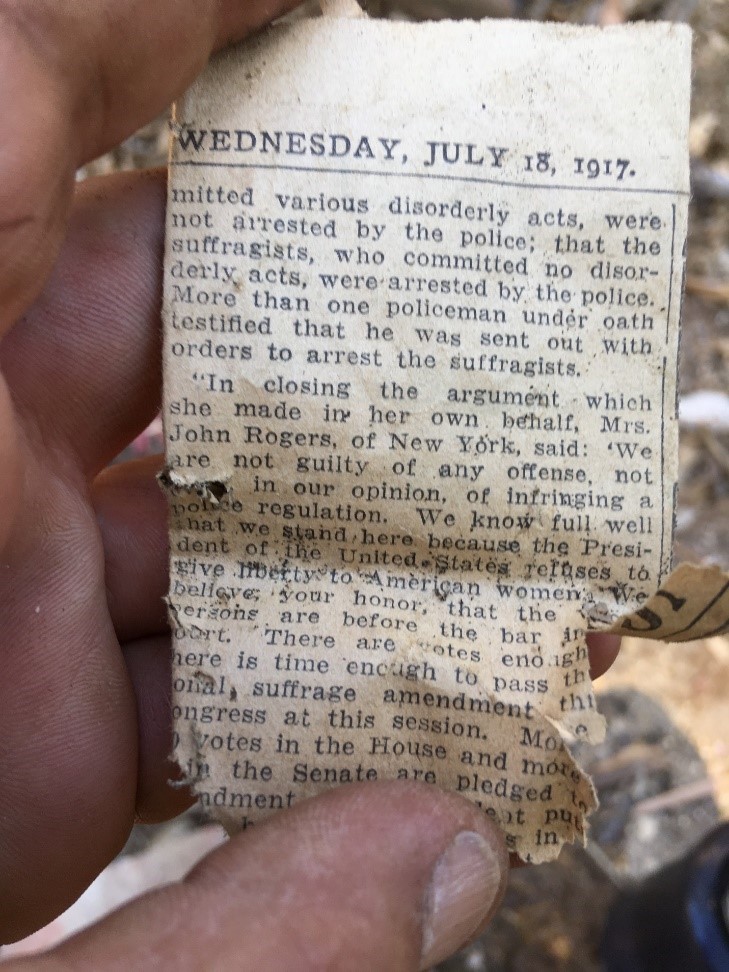 WEDNESDAY, JULY 18, 1917.
mitted various disorderly acts, were
not arrested by the police; that the
suffragists, who committed no disor-
derly acts, were arrested by the police.
More than one policeman under oath
testified that he was sent out with
orders to arrest the suffragists.
"In closing the argument which
she made in her own behalf, Mrs.
John Rogers, of New York, said: 'We
are not guilty of any offense, not
in our opinion, of infringing a
police regulation. We know full well
that we stand here because the Presi-
dent of the United States refuses to
give liberty to American women. We
believe, your honor, that the
persons are before the bar in
ourt. There are votes enough
here is time enough to pass th
onal suffrage amendment thi
ongress at this session. More
votes in the House and more
in the Senate are pledged to
ndment
put
in